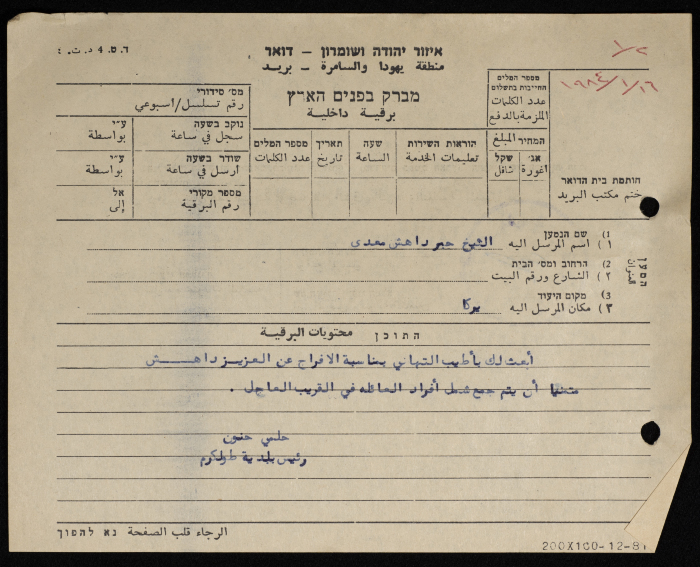 ד.ס. 4 ד.ת. 2
איזור יהודה ושומרון - דואר
منطقة يهودا والسامرة - بريد
١٩٨٤/١/١٦
מברק בפנים הארץ
برقية داخلية
מס׳ סידורי
رقم تسلسل/اسبوعي
נוקב בשעה
سجل في ساعة
ע״י
بواسطة
שודר בשעה
ارسل في ساعة
ע״י
بواسطة
מספר מקורי
رقم البرقية
אל
إلى
מספר המלים
عدد الكلمات
תאריך
تاريخ
שעה
الساعة
הוראות השירות
تعليمات الخدمة
מספר המלים
החייבות בתשלום
عدد الكلمات
الملزمة بالدفع
המחיר المبلغ
שקל
شاقل
אג׳
اغورة
חותמת בית הדואר
ختم مكتب البريد
המען
العنوان
1) שם הנמען
١) اسم المرسل اليه الشيخ جبر داهش معدي
2) הרחוב ומס׳ הבית
٢) الشارع ورقم البيت
3) מקום היעוד
٣) مكان المرسل اليه يركا
התוכן محتويات البرقية
أبعث لك بأطيب التهاني بمناسبة الافراج عن العزيز داهــش
متمنيا أن يتم جمع شمل أفراد العائله في القريب العاجل .
حلمي حنون
رئيس بلدية طولكرم
الرجاء قلب الصفحة נא להפוך
200X100-12-81